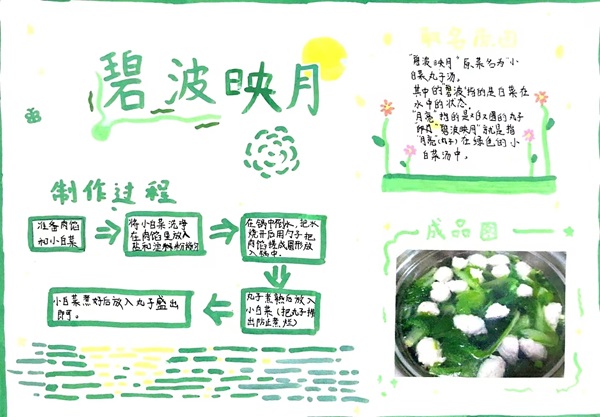 碧波映月
取名原因
"碧波映月"原菜名为"小
白菜丸子汤。
其中的"碧波"指的是白菜在
水中的状态
"月亮"指的是又白又圆的丸子
"碧波映月"就是指
"月亮"(丸子)在绿色的小
白菜汤中。
制作过程
准备肉馅
和小白菜
将小白菜洗净
在肉馅里放入
盐和淀粉
在锅中倒水,把水
烧开后用勺子把
肉馅揉成圆形放
入锅中.
丸子煮熟后放入
小白菜(把丸子捞
出防止煮烂)
小白菜煮好后放入丸子盛出
即可。
成品图